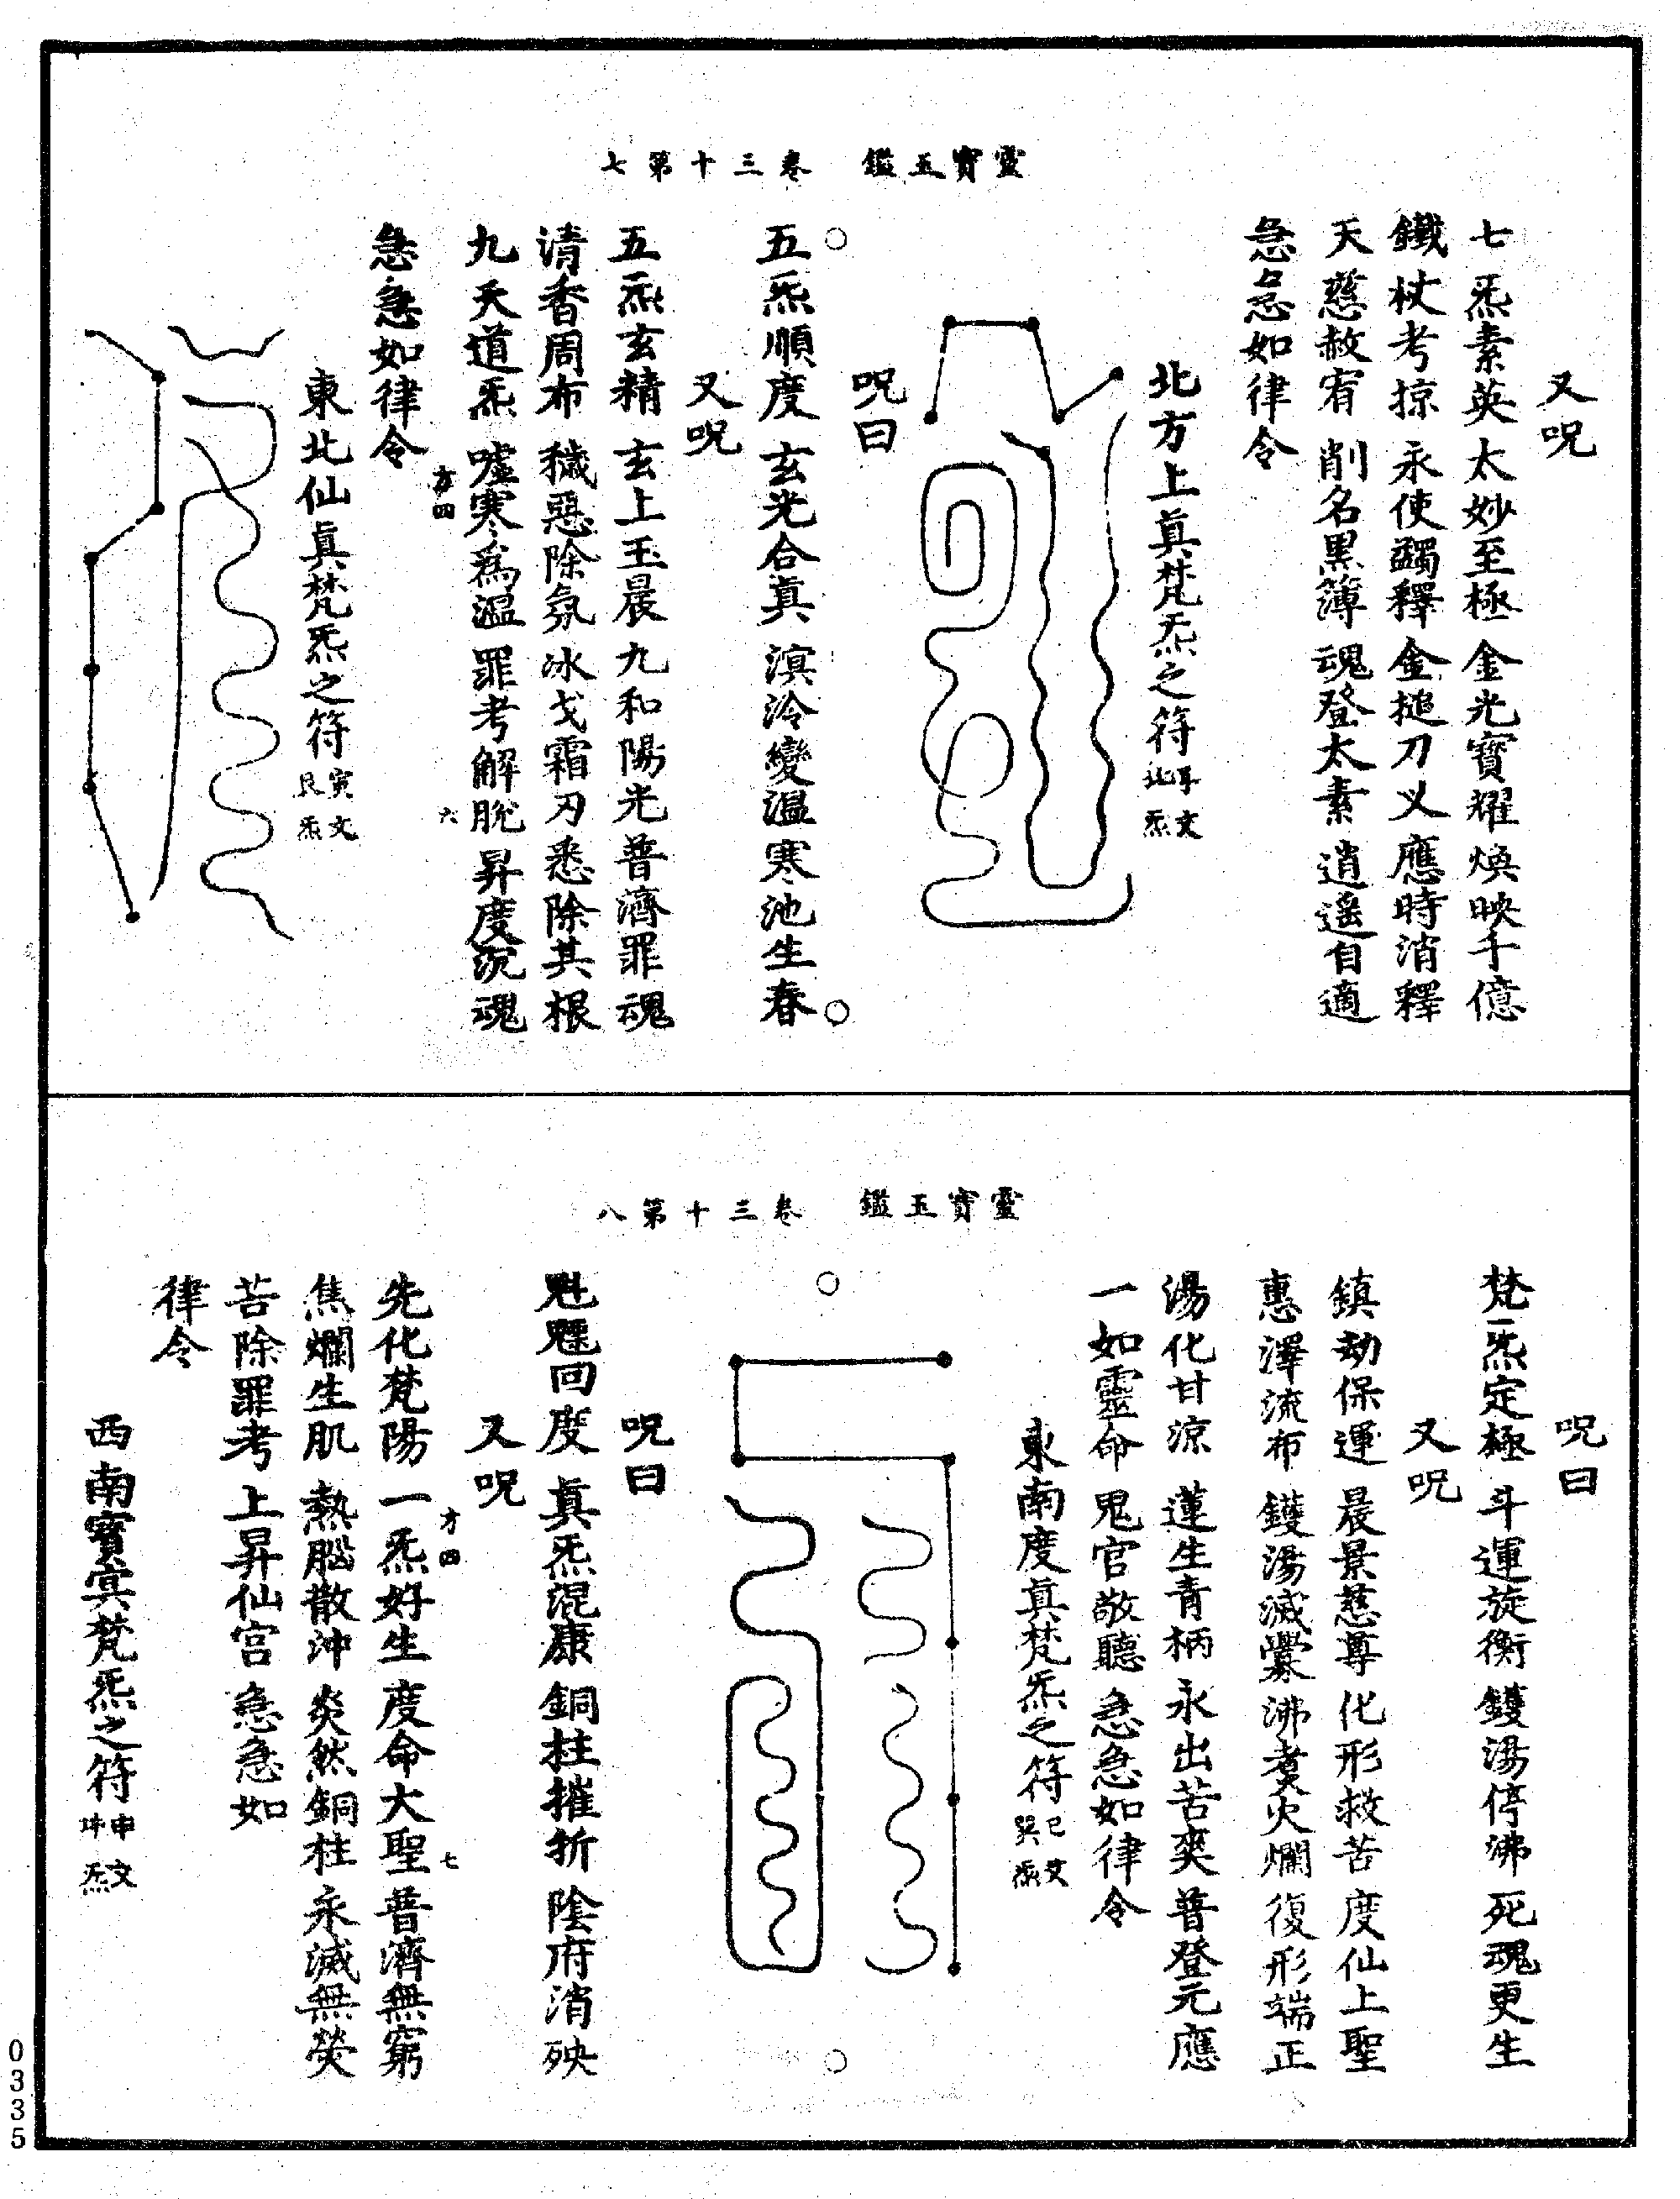 靈寶玉鑑　卷三十第七
又呪
七炁素英　太妙至極　金光寶耀　煥映千億
鐵杖考掠　永使蠲釋　金搥刀乂　應時消釋
天慈赦宥　削名黑簿　魂登太素　逍遙自適
急急如律令
北方上真梵炁之符
子文
北炁
呪曰
五炁順度　玄光合真　溟泠變溫　寒池生春
又呪
五炁玄精　玄上玉晨　九和陽光　普濟罪魂
清香周布　穢惡除氛　冰戈霜刃　悉除其根
九天道炁　噓寒為溫　罪考解脫　昇度沉魂
方四　六
急急如律令
東北仙真梵炁之符
寅文
艮炁
靈寶玉鑑　卷三十第八
呪曰
梵炁定極　斗運旋衡　鑊湯停沸　死魂更生
又呪
鎮劫保運　晨景慈尊　化形救苦　度仙上聖
惠澤流布　鑊湯滅爨　沸煑火爛　復形端正
湯化甘涼　蓮生青柄　永出苦爽　普登元應
一如靈命　鬼官敬聽　急急如律令
東南度真梵炁之符
巳文
巽炁
呪曰
魁魒回度　真炁混康　銅柱摧折　陰府消殃
又呪
方四　七
先化梵陽　一炁好生　度命大聖　普濟無窮
焦爛生肌　熱腦散沖　炎然銅柱　永滅無熒
苦除罪考　上昇仙宮　急急如
律令
西南賓㝠梵炁之符
申文
坤炁
0335